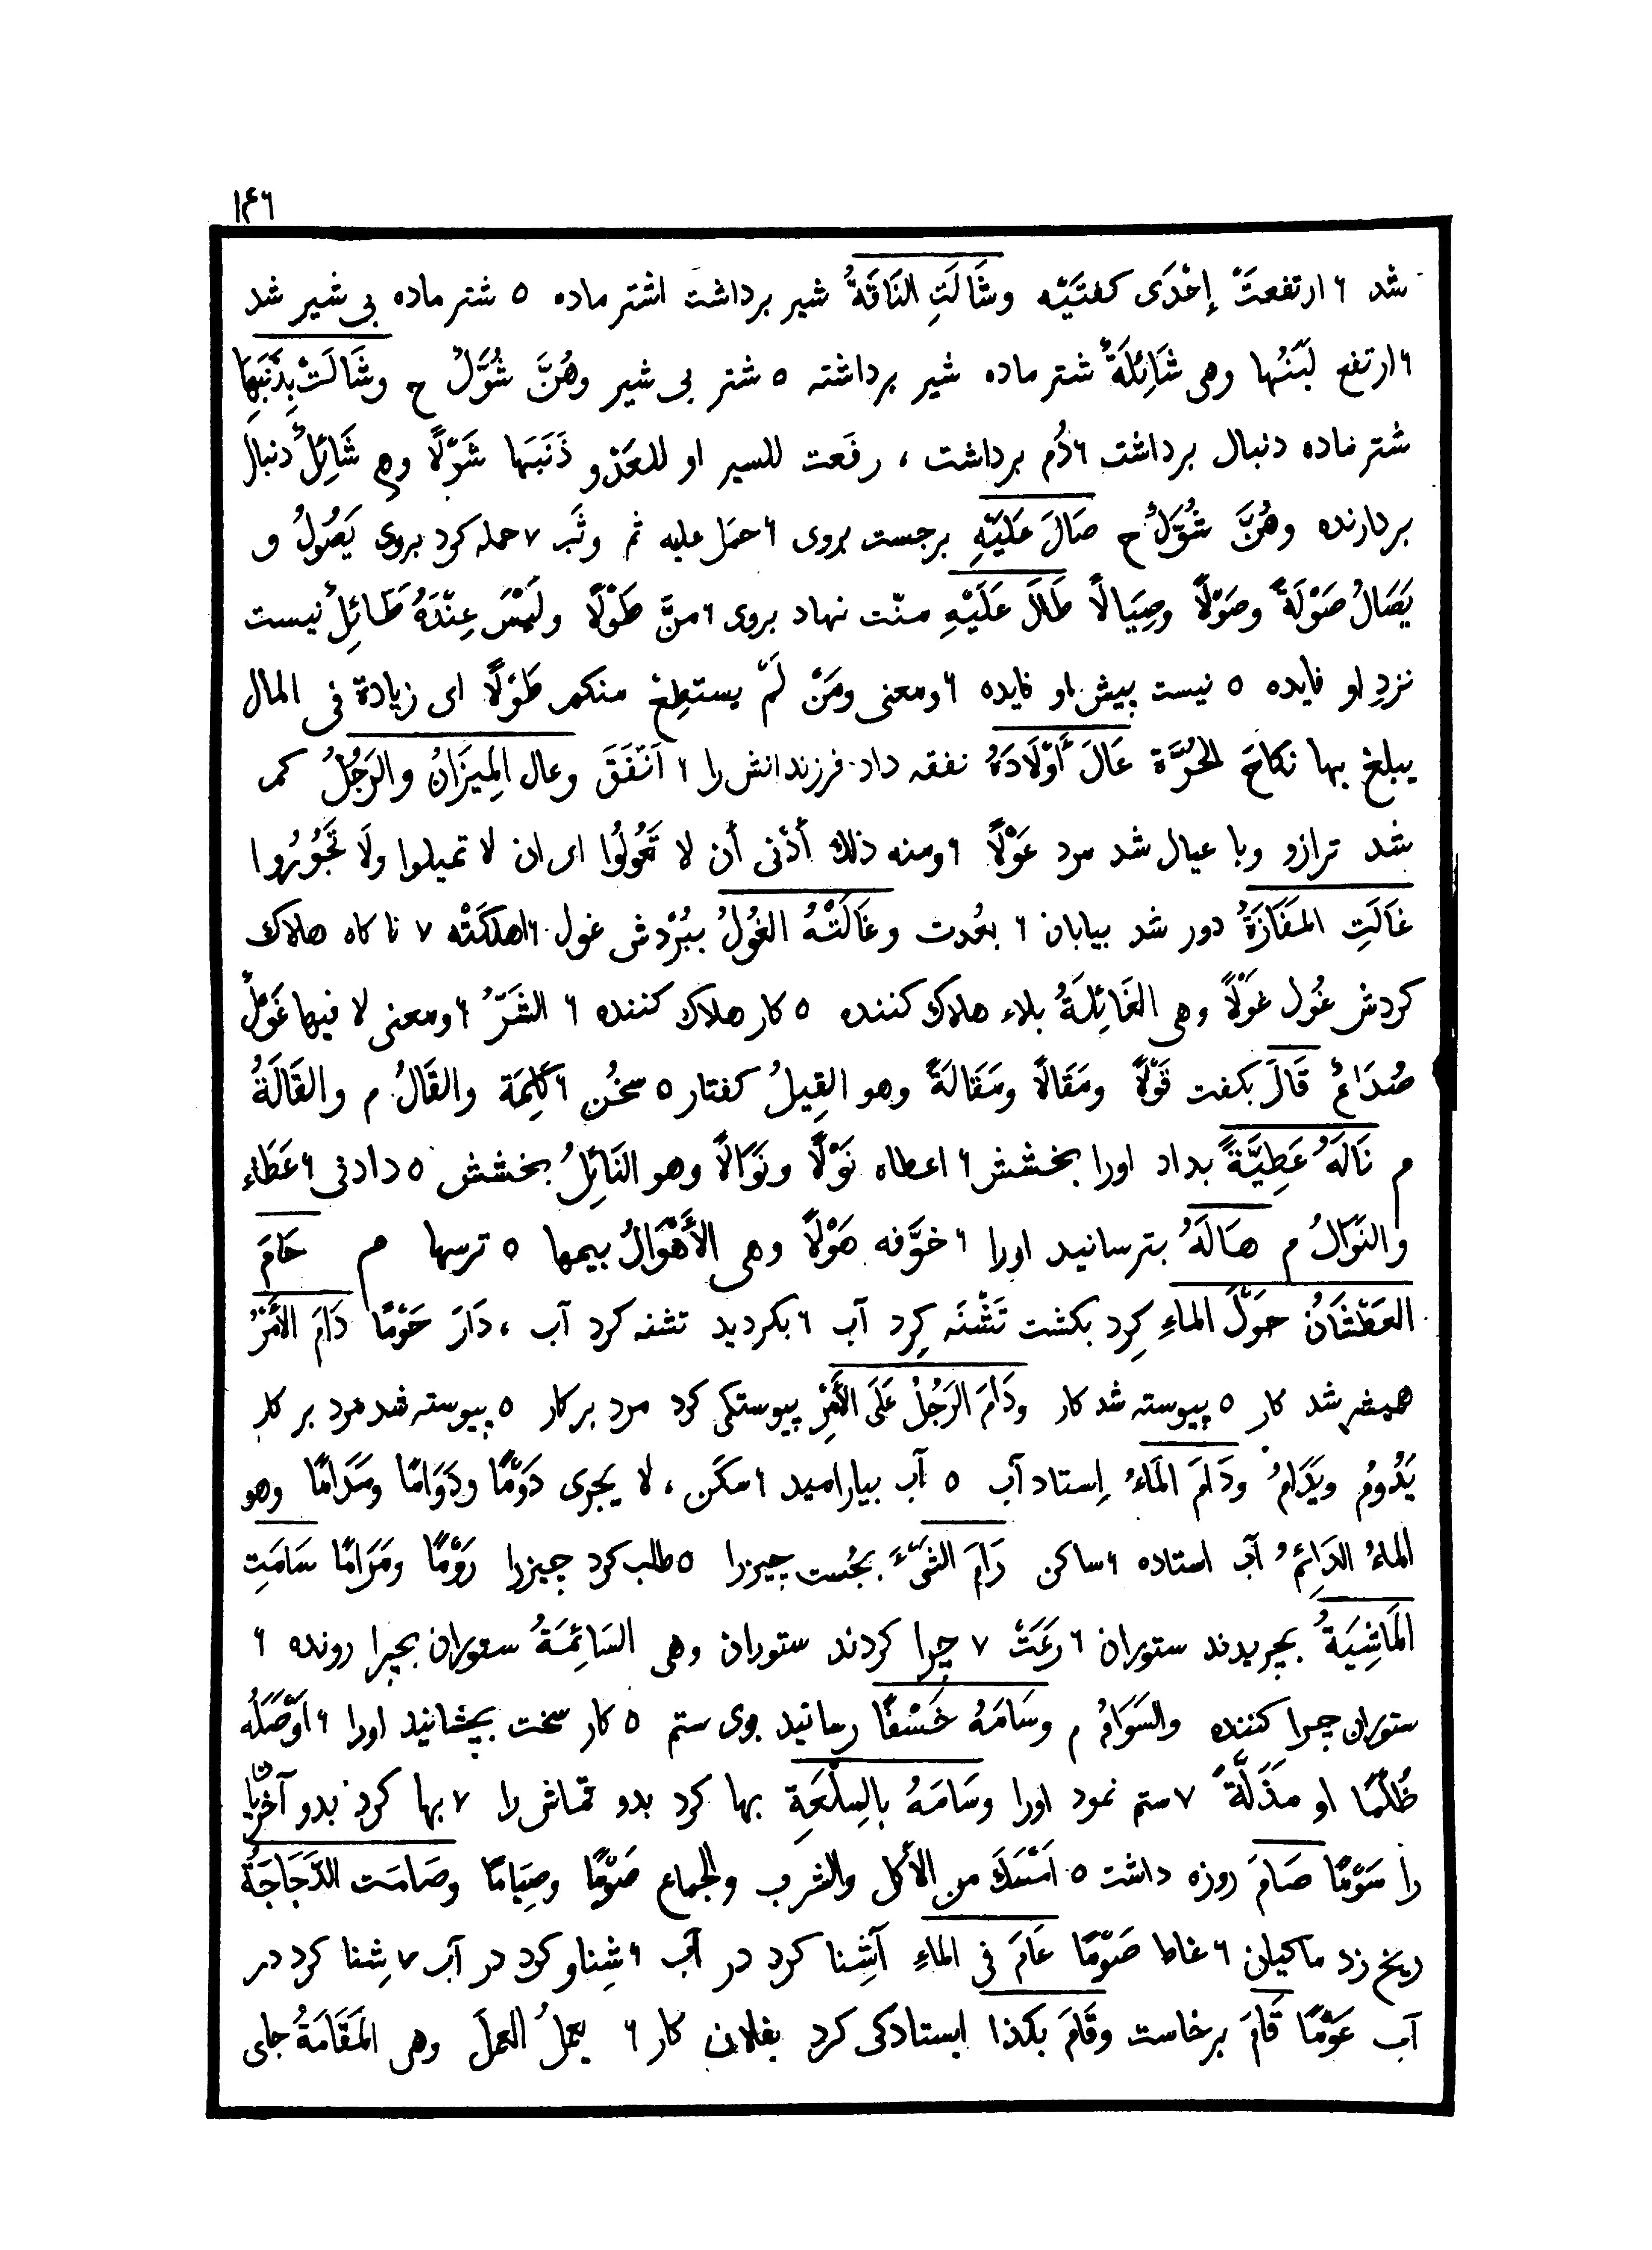 ۱۴۶
شد ۶ ارتفعتْ إحْدَى كفتَيْه وشَالَتِ النَاقَةُ شير برداشت اشتر ماده ۵ شتر ماده بی شیر شد
۶ ارتفع لَبَنُها وهى شَائِلَةٌ شتر ماده شير برداشته ۵ شتر بی شیر وهُنَّ شُوَّلٌ ح وشَالَتْ بِذَنَبِهَا
شتر ماده دنبال برداشت ۶ دُم برداشت ، رفَعت للسير او للعَدْو ذَنَبَها شَوْلًا وهى شَائِلٌ دنبال
بردارنده وهُنَّ شُوَّلٌ ح صَالَ عَلَيْهِ برجست بروی ۶ حمَل عليه ثم وثَبَر ۷ حمله کرد بروی يَصُولُ و
يَصَالُ صَوْلَةً وصَوْلًا وصِيَالًا طَالَ عَلَيْهِ منّت نهاد بروی ۶ منَّ طَوْلًا ولَيْسَ عِنْدَهُ طَائِلٌ نیست
نزدِ او فایده ۵ نیست پیش او فایده ۶ ومعنى ومَنْ لَمْ يستطِعْ منكم طَوْلًا اى زيادة فى المال
يبلغ بها نكاحَ الحُرَّة عَالَ أَوْلَادَهُ نفقه داد فرزندانش را ۶ اَنْفَقَ وعال المِيزَانُ والرَجُلُ کم
شد ترازو وبا عیال شد مرد عَوْلًا ۶ ومنه ذلك أدْنى أن لا تَعُولُوا اى ان لا تميلوا ولَا تَجُورُوا
غَالَتِ المَفَازَةُ دور شد بیابان ۶ بعُدت وغَالَتْهُ الغُولُ ببُرْدش غول ۶ اهلكَتْه ۷ ناکاه هلاک
کردش غُول غَوْلًا وهى الغَائِلَةُ بلاء هلاک کننده ۵ کار هلاک کننده ۶ الشَرّ ۶ ومعنى لا فيها غَوْلٌ
صُدَاعٌ قَالَ بکفت قَوْلًا ومَقَالًا ومَقَالَةً وهو القِيلُ کفتار ۵ سخُن ۶ كلِمَة والقَالُ م والقَالَةُ
م نَالَهُ عَطِيَّةً بداد اورا بخشش ۶ اعطاه نَوْلًا ونَوَالًا وهو النَائِلُ بخشش ۵ دادنی ۶ عَطَاء
والنَوَالُ م هَالَهُ بترسانید اورا ۶ خوَّفه هَوْلًا وهى الأَهْوَالُ بیمها ۵ ترسها م حَامَ
العَطْشَانُ حَوْلَ الماءِ کِرد بکشت تَشْنَه کِرد آب ۶ بکردید تشنه کرد آب ، دَارَ حَوْمًا دَامَ الأَمْرُ
همیشه شد کار ۵ پیوسته شد کار ودَامَ الرَجُلُ عَلَى الأَمْرِ پیوستکی کرد مرد بر کار ۵ پیوسته شد مرد بر کار
يَدُومُ ويَدَامُ ودَامَ المَاءُ اِستاد آب ۵ آب بیارامید ۶ سكَن ، لا يجرى دَوْمًا ودَوَامًا ومَدَامًا وهو
الماءُ الدَائِمُ آب استاده ۶ ساكن رَامَ الشَيْءَ بجُست چیزرا ۵ طلب کرد چیزرا رَوْمًا ومَرَامًا سَامَتِ
المَاشِيَةُ بچریدند ستوران ۶ رعَتْ ۷ چرا کردند ستوران وهى السَائِمَةُ ستوران بچرا رونده ۶
ستوران چرا کننده والسَوَامُ م وسَامَهُ خَسْفًا رسانید بوی ستم ۵ کار سخت بچشانید اورا ۶ اَوْصَلَه
ظُلْمًا او مَذَلَّةً ۷ ستم نمود اورا وسَامَهُ بالسِلْعَةِ بها کرد بدو قماش را ۷ بها کرد بدو آخریا
را سَوْمًا صَامَ روزه داشت ۵ اَمْسَكَ من الأكل والشرب والجماع صَوْمًا وصِيَامًا وصَامَت الدَّجَاجَةُ
ریخ زد ماکیان ۶ غاط صَوْمًا عَامَ فى الماءِ آشِنا کرد در آب ۶ شِناو کرد در آب ۷ شِنا کرد در
آب عَوْمًا قَامَ برخاست وقَامَ بكذا ایستادکی کرد بفلان کار ۶ يعملُ العمل وهى المَقَامَةُ جای